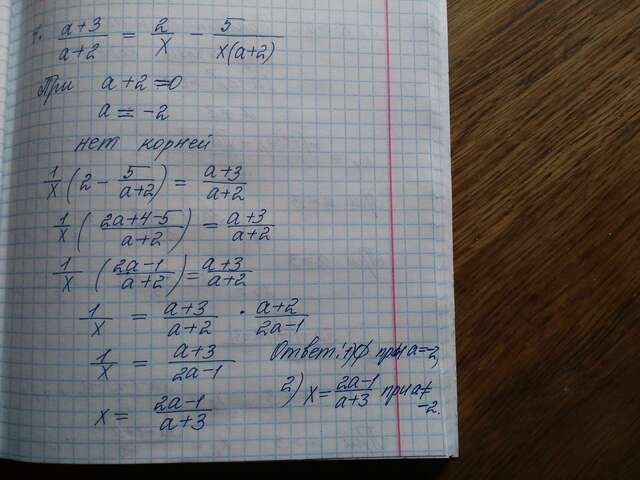 1. (a+3)/(a+2) = 2/x - 5/(x(a+2))
При a+2=0
a = -2
нет корней
1/x (2 - 5/(a+2)) = (a+3)/(a+2)
1/x ((2a+4-5)/(a+2)) = (a+3)/(a+2)
1/x ((2a-1)/(a+2)) = (a+3)/(a+2)
1/x = (a+3)/(a+2) · (a+2)/(2a-1)
1/x = (a+3)/(2a-1)
x = (2a-1)/(a+3)
Ответ: 1) ∅ при a=-2,
2) x = (2a-1)/(a+3) при a≠
-2.